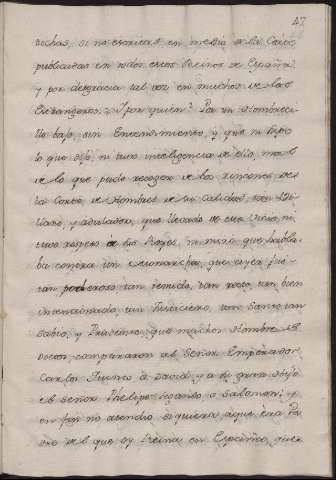 47
dichas, si no escritas en medio de la Corte
publicadas en todos estos Reinos de España
y por desgracia tal vez en muchos de los
Estrangeros; y por quien? Por un Hombreci-
llo bajo, sin Entendimiento, y que ni supo
lo que dijo, ni tuvo inteligencia de ello, mas
de lo que pudo recoger de los rincones de
la Corte, de Hombres de su calidad,
y adulador, que llevado de este vicio, ni
tuvo respeto de los Reyes, ni miró que habla-
ba contra un Monarcha, que ayer fue
tan poderoso tan temido, tan recto, tan bien
intencionado, un Justiciero, un Santo, un
sabio, y Prudente, que muchos Hombres
Doctos compararon al Señor Emperador
Carlos Quinto a David, y a su gran Hijo
el Señor Phelipe segundo a Salomon; y
en fin no atendió siquiera a que era Pa-
dre del que oy Reina en Espiritu, que